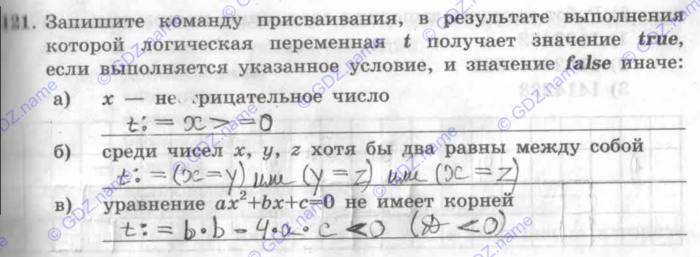 121. Запишите команду присваивания, в результате выполнения
которой логическая переменная t получает значение true,
если выполняется указанное условие, и значение false иначе:
а) x — не рицательное число
t:=x>=0
б) среди чисел x, y, z хотя бы два равны между собой
t:=(x=y) или (y=z) или (x=z)
в) уравнение ax²+bx+c=0 не имеет корней
t:=b·b-4·a·c<0 (D<0)
© GDZ.name